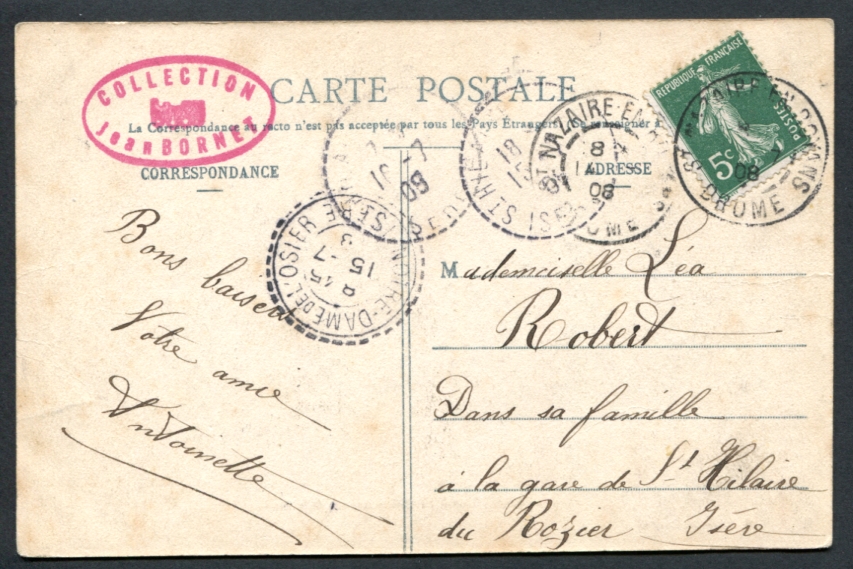 COLLECTION
Jean BORNET
CARTE POSTALE
La Correspondance au recto n'est pas acceptée par tous les Pays Étrangers. Se renseigner à
CORRESPONDANCE
ADRESSE
RÉPUBLIQUE FRANÇAISE
POSTES
5c
ST NAZAIRE-EN-ROYANS
8
08
DRÔME
NAZAIRE-EN-ROYANS
08
DROME
18
ISÈRE
09
ISÈRE
NOTRE-DAME DE L'OSIER
8 15
15 -7
Bons baisers
Votre amie
Antoinette
Mademoiselle Léa
Robert
Dans sa famille
à la gare de St Hilaire
du Rozier Isère